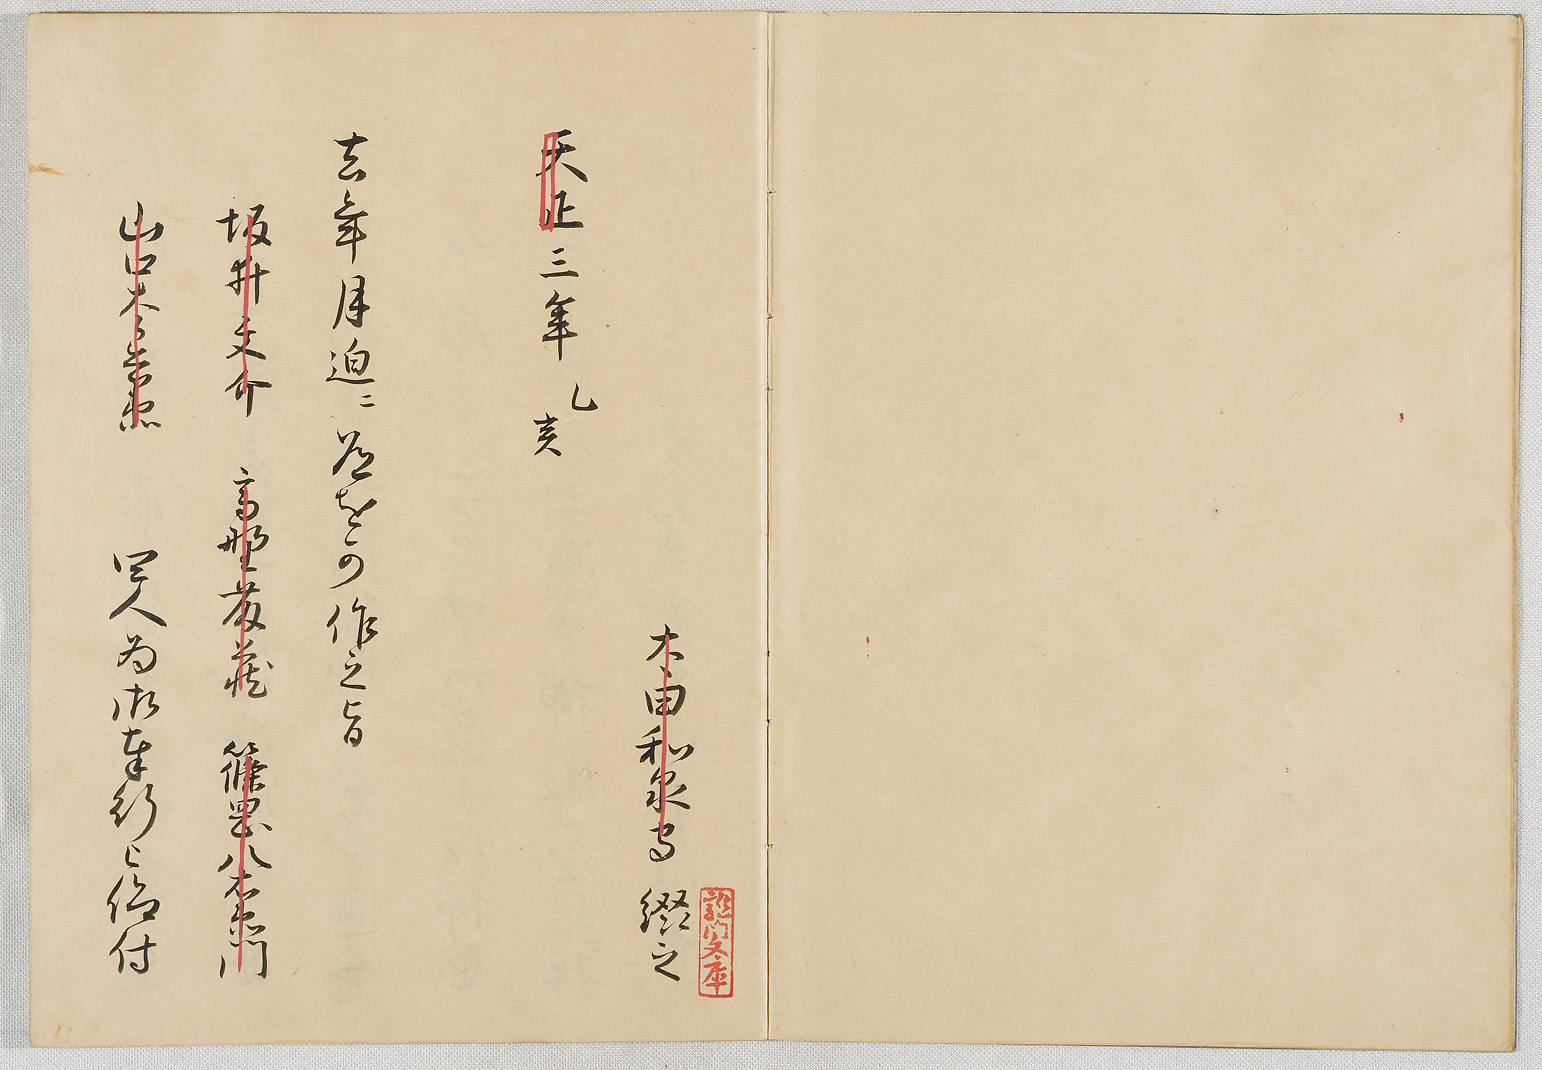 龍門文庫
太田和泉守 綴之
天正三年 乙亥
去年月迫ニ道を可作之旨
坂井文介 高野藤蔵 篠岡八右衛門
山口太郎兵衛 四人為御奉行被仰付